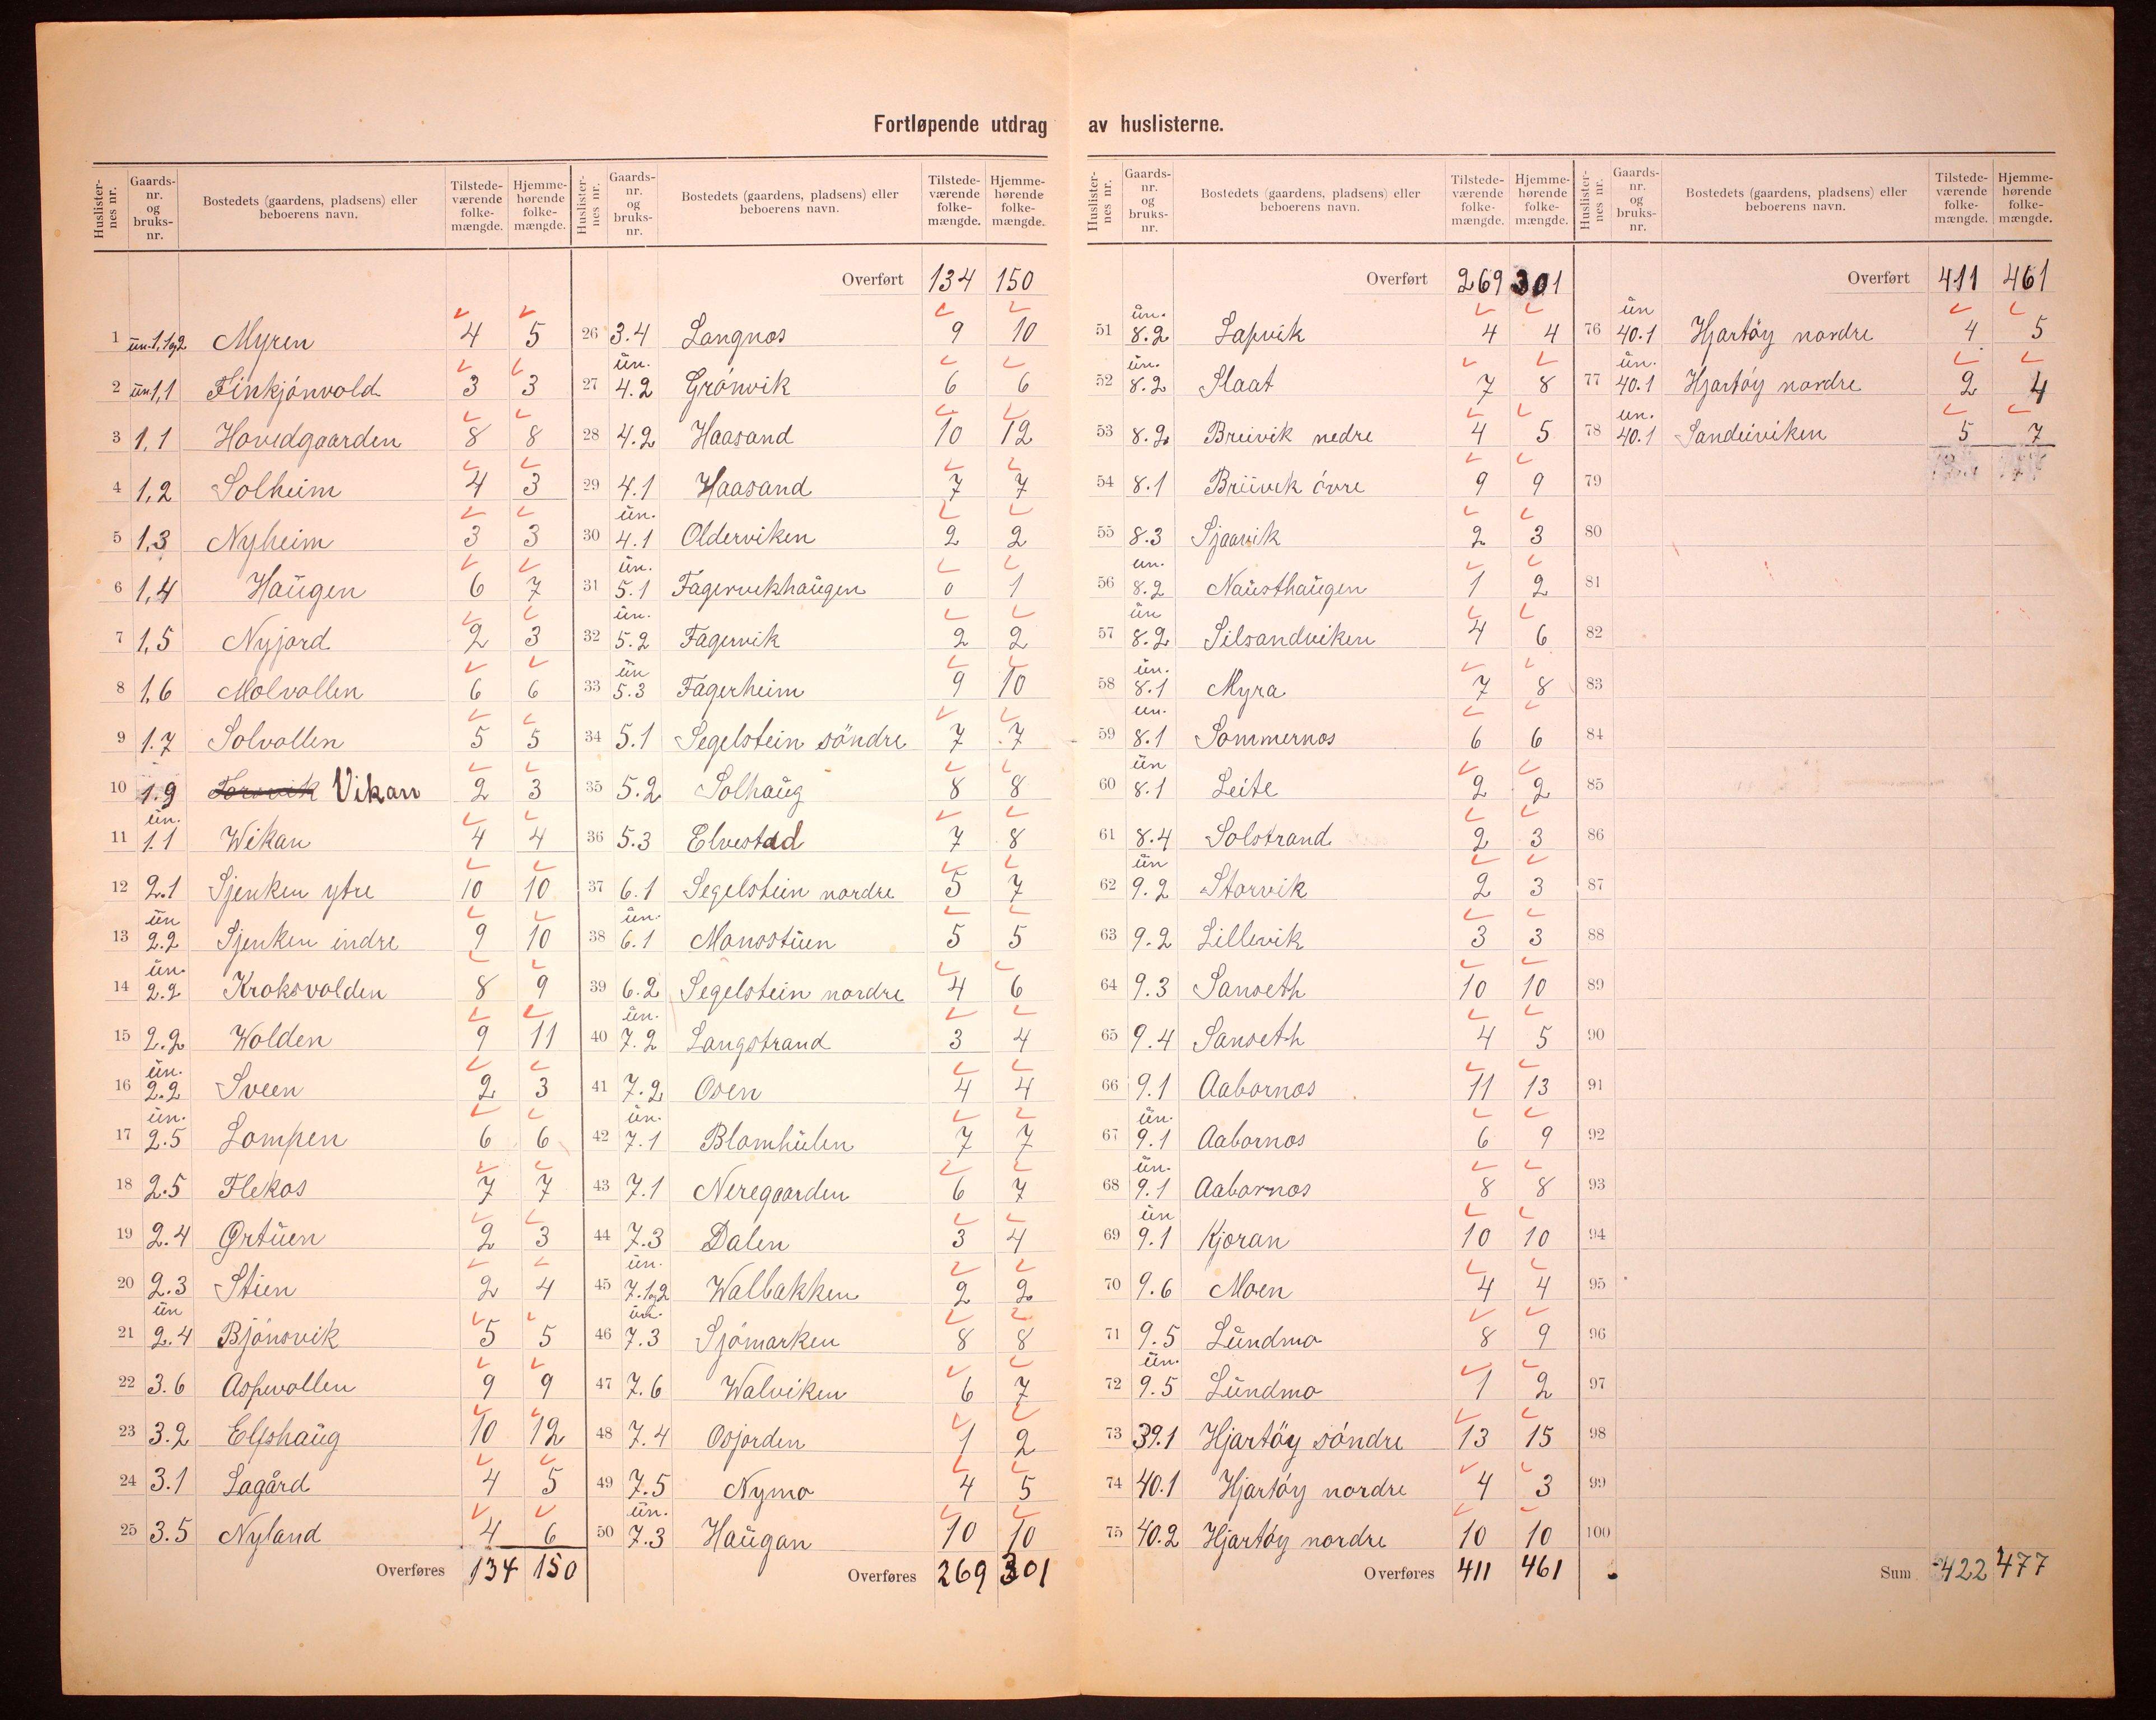 Fortløpende utdrag av huslisterne.
Huslisternes nr. Gaards-nr. og bruks-nr. Bostedets (gaardens, pladsens) eller beboerens navn. Tilstedeværende folkemængde. Hjemmehørende folkemængde.
1 un. 1,1og2 Myren 4 5
2 un 1,1 Finkjónvold 3 3
3 1,1 Hovedgaarden 8 8
4 1,2 Solheim 4 3
5 1,3 Nyheim 3 3
6 1,4 Haŭgen 6 7
7 1,5 Nyjord 2 3
8 1,6 Molvollen 6 6
9 1.7 Solvollen 5 5
10 1.9 Vikan 2 3
11 un. 1.1 Wikan 4 4
12 2.1 Sjenken ytre 10 10
13 un 2.2 Sjenken indre 9 10
14 un. 2.2 Kroksvolden 8 9
15 2.2 Wolden 9 11
16 un. 2.2 Sveen 2 3
17 un. 2.5 Lompen 6 6
18 2.5 Flekos 7 7
19 2.4 Ørtŭen 2 3
20 2.3 Stien 2 4
21 un 2.4 Bjónsvik 5 5
22 3.6 Aspevollen 9 9
23 3.2 Elfshaŭg 10 12
24 3.1 Lagård 4 5
25 3.5 Nyland 4 6
Overføres 134 150
Huslisternes nr. Gaards-nr. og bruks-nr. Bostedets (gaardens, pladsens) eller beboerens navn. Tilstedeværende folkemængde. Hjemmehørende folkemængde.
Overført 134 150
26 3.4 Langnos 9 10
27 un. 4.2 Grónvik 6 6
28 4.2 Haasand 10 12
29 4.1 Haasand 7 7
30 un. 4.1 Olderviken 2 2
31 un. 5.1 Fagervikhaŭgen 0 1
32 un. 5.2 Fagervik 2 2
33 un 5.3 Fagerheim 9 10
34 5.1 Segelstein söndre 7 7
35 5.2 Solhaŭg 8 8
36 5.3 Elvestad 7 8
37 6.1 Segelstein nordre 5 7
38 un. 6.1 Monsstŭen 5 5
39 6.2 Segelstein nordre 4 6
40 un. 7.2 Langstrand 3 4
41 7.2 Osen 4 4
42 un. 7.1 Blomhŭlen 7 7
43 7.1 Neregaarden 6 7
44 7.3 Dalen 3 4
45 un. 7.1og2 Walbakken 2 2
46 un. 7.3 Sjómarken 8 8
47 7.6 Walviken 6 7
48 7.4 Osjorden 1 2
49 7.5 Nymo 4 5
50 un. 7.3 Haŭgan 10 10
Overføres 269 301
Huslisternes nr. Gaards-nr. og bruks-nr. Bostedets (gaardens, pladsens) eller beboerens navn. Tilstedeværende folkemængde. Hjemmehørende folkemængde.
Overført 269 301
51 un. 8.2 Lapvik 4 4
52 un. 8.2 Slaat 7 8
53 8.2 Breivik nedre 4 5
54 8.1 Breivik óvre 9 9
55 8.3 Sjaavik 2 3
56 un. 8.2 Naŭsthaŭgen 1 2
57 un 8.2 Silsandviken 4 6
58 un. 8.1 Myra 7 8
59 un. 8.1 Sommernos 6 6
60 un 8.1 Leite 2 2
61 8.4 Solstrand 2 3
62 un 9.2 Storvik 2 3
63 9.2 Lillevik 3 3
64 9.3 Sanseth 10 10
65 9.4 Sanseth 4 5
66 9.1 Aabornos 11 13
67 un. 9.1 Aabornos 6 9
68 un. 9.1 Aabornos 8 8
69 un 9.1 Kjoran 10 10
70 9.6 Moen 4 4
71 9.5 Lŭndmo 8 9
72 un. 9.5 Lŭndmo 1 2
73 39.1 Hjartöy söndre 13 15
74 40.1 Hjartóy nordre 4 3
75 40.2 Hjartóy nordre 10 10
Overføres 411 461
Huslisternes nr. Gaards-nr. og bruks-nr. Bostedets (gaardens, pladsens) eller beboerens navn. Tilstedeværende folkemængde. Hjemmehørende folkemængde.
Overført 411 461
76 un 40.1 Hjartöy nordre 4 5
77 un. 40.1 Hjartóy nordre 2 4
78 un. 40.1 Sandviken 5 7
79
80
81
82
83
84
85
86
87
88
89
90
91
92
93
94
95
96
97
98
99
100
Sum 422 477